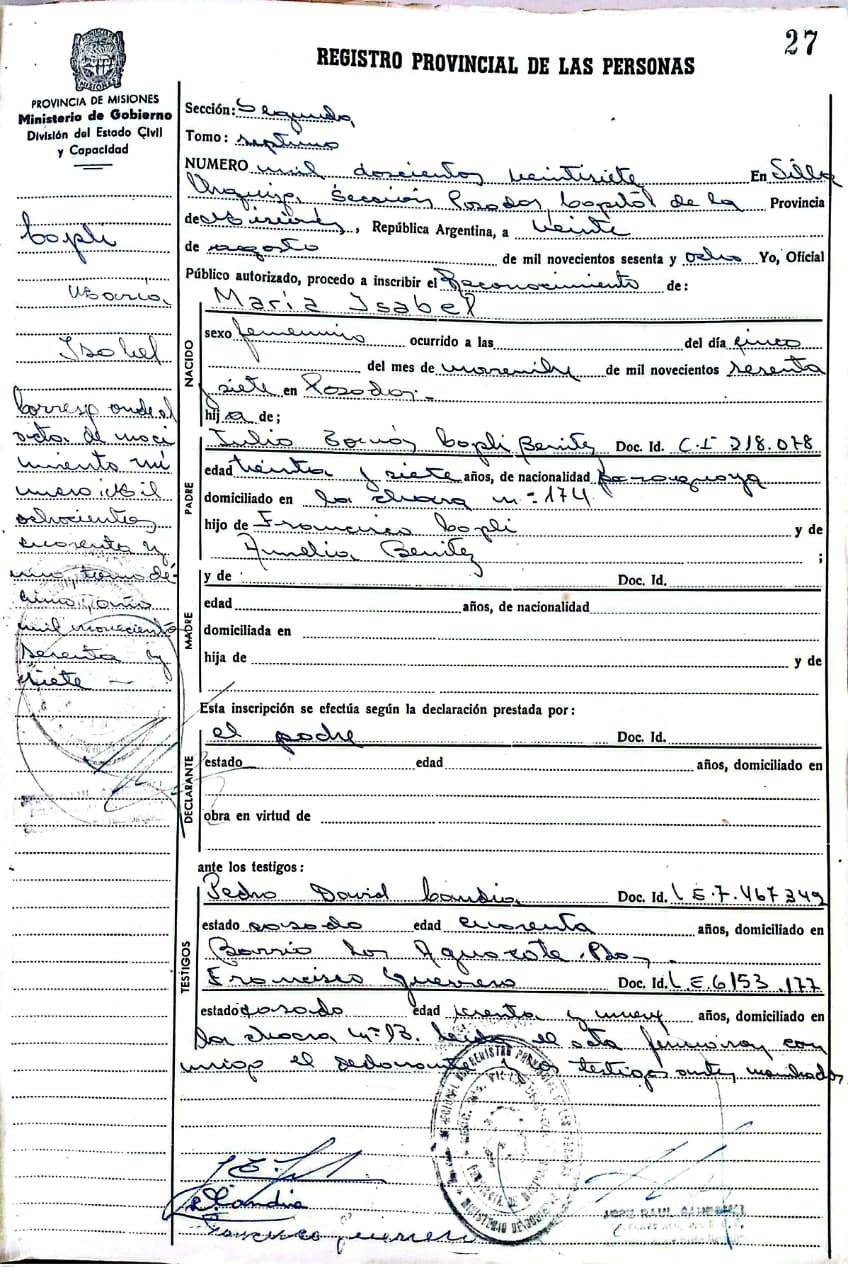 27
REGISTRO PROVINCIAL DE LAS PERSONAS
PROVINCIA DE MISIONES
Ministerio de Gobierno
División del Estado Civil
y Capacidad
Copli
María
Isabel
Corresponde al
acta de naci
miento nú
mero Mil
ochocientos
cuarenta y
uno, tomo dé-
cimo, año
mil novecientos
sesenta y
siete —
Sección: Segunda
Tomo: septimo
NUMERO mil doscientos veintisiete En Villa
Urquiza, Sección Posadas, Capital de la Provincia
de Misiones, República Argentina, a veinte
de agosto de mil novecientos sesenta y ocho Yo, Oficial
Público autorizado, procedo a inscribir el Reconocimiento de:
NACIDO
María Isabel
sexo femenino ocurrido a las del día cinco
del mes de noviembre de mil novecientos sesenta
y siete en Posadas.-
hija de;
PADRE
Julio Copli Benitez Doc. Id. C.I 218.078
edad treinta y siete años, de nacionalidad paraguaya
domiciliado en la chacra n.º 174
hijo de Francisco Copli y de
Aurelia Benitez ;
MADRE
y de Doc. Id.
edad años, de nacionalidad
domiciliada en
hija de y de
Esta inscripción se efectúa según la declaración prestada por:
DECLARANTE
el padre Doc. Id.
estado edad años, domiciliado en
obra en virtud de
ante los testigos:
TESTIGOS
Pedro David Candia Doc. Id. L E.7.467349
estado casado edad cuarenta años, domiciliado en
Barrio Los Aguacate
Francisco Guerrero Doc. Id. L.E.6153.177
estado casado edad años, domiciliado en
la chacra nº 13. Leida el acta firman con
migo el declarante y los testigos antes nombrados
Candia
Francisco Guerrero